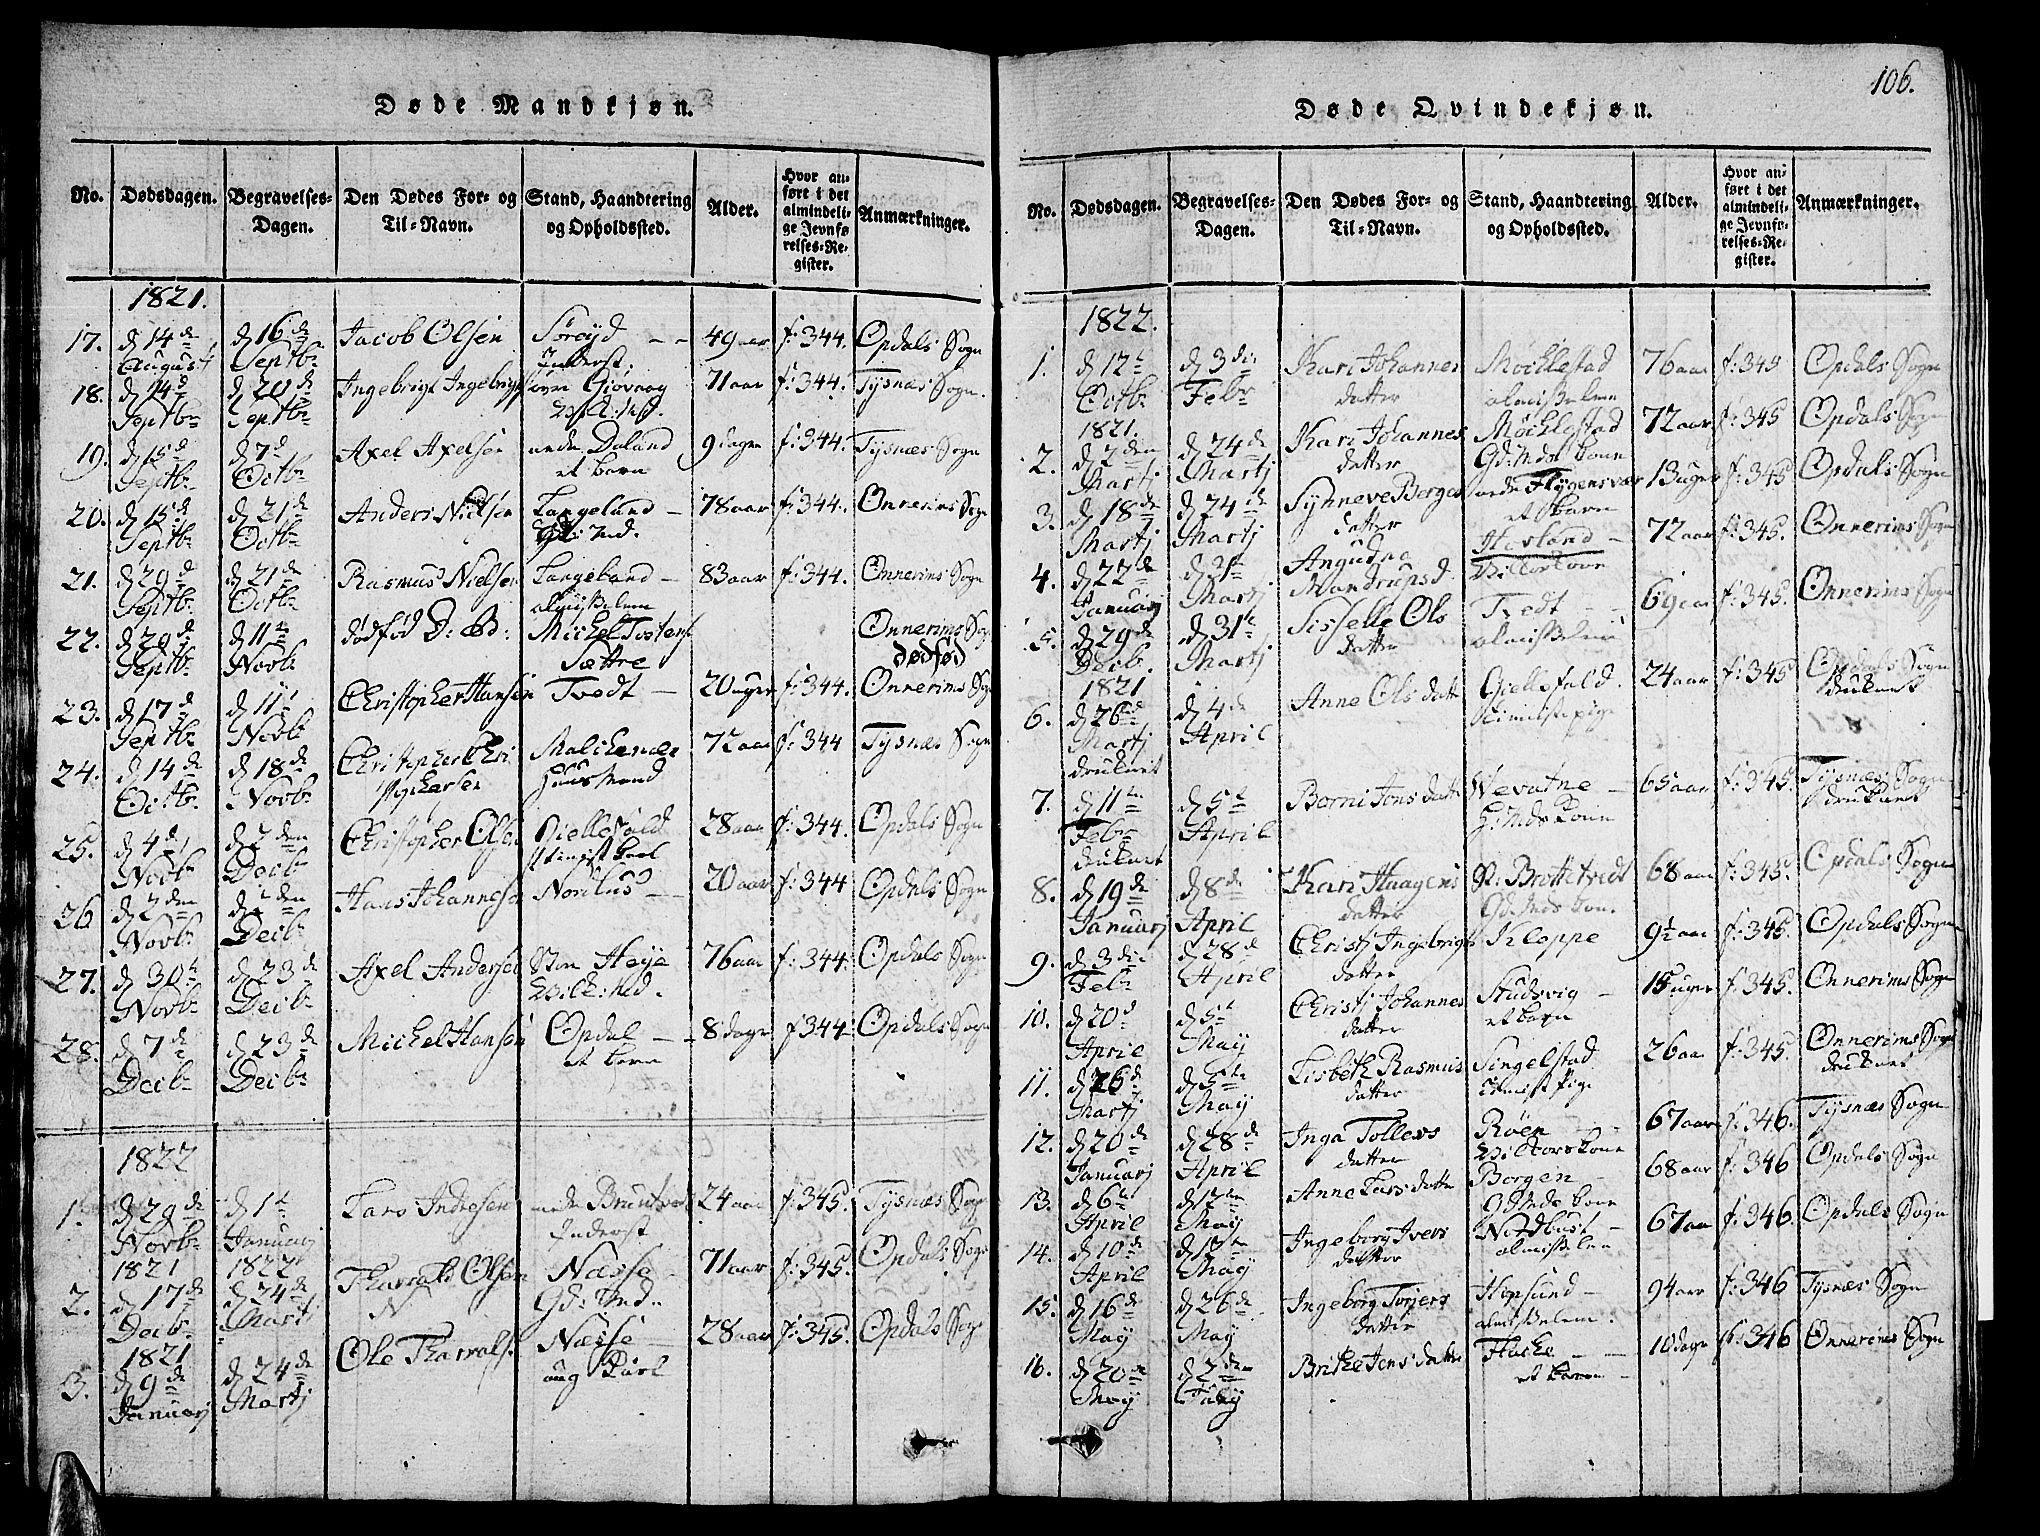 Døde Mandkjøn.
No. Dødsdagen. Begravelses-Dagen. Den Dødes For- og Til-Navn. Stand, Haandtering og Opholdssted. Alder. Hvor anført i det almindelige Jevnførelses-Register. Anmærkninger.
1821.
17. d 14de August d 16de Septbr Jacob Olsen Inderst 49 aar f: 344. Opdals Sogn
18. d 14d Septbr d 20de Septbr Ingebrigt 71 aar f: 344. Tysnæs Sogn.
19. Septbr d 7d Octbr Axel Axelsen nedre Daland et barn 9 dager f: 344. Tysnæs Sogn
20. Septbr d 21de Octbr Anders Nielsen Langeland Gd: Md. 78 aar f: 344. Onnerims Sogn
21. d 29de Septbr d 21de Octbr Rasmus Nielsen Langeland almisselem 83 aar f: 344. Onnerims Sogn
22. d 29de Septbr d 11te Novbr dødfød D: B: Michel Tostens Sættre Onnerims Sogn dødfød
23. d 17de Septbr d 11t Novbr Christopher Hansen Tvedt 20 uger f: 344. Onnerims Sogn
24. d 14de Octbr d 18de Novbr Christopher Christophersen Malchenæs Huusmand 72 aar f: 344 Tysnæs Sogn
25. d 4d Novbr d 2den Decbr Christopher Olsen Giellefald 28 aar f: 344. Opdals Sogn
26 d 2den Novbr d 2den Decbr Hans Johannesen Nordhus 20 aar f: 344 Opdals Sogn
27. d 30te Novbr d 23de Decbr Axel Andersen Stor Høye 76 aar f: 344. Opdals Sogn
28. d 7de Decbr d 23de Decbr Michel Hansen Opdal et barn 8 dage f 344. Opdals Sogn
1822
1. d 29de Novbr 1821 d 1te Januarj 1822 Lars Andresen nedre Inderst 24 aar f: 345. Tysnæs Sogn
2. d 17de Decbr 1821 d 24de Martj Tharrald Olsen N Næsse Gd: Md. 71 aar f: 345. Opdals Sogn
3. d 9de Januarj d 24de Martj Ole Tharrals Næsse ung Karl 28 aar f: 345. Opdals Sogn
106.
Døde Qvindekjøn.
No. Dødsdagen. Begravelses-Dagen. Den Dødes For- og Til-Navn. Stand, Haandtering og Opholdssted. Alder. Hvor anført i det almindelige Jevnførelses-Register. Anmærkninger.
1822.
1. d 12te Octbr 1821. d 3die Febr Kari Johannes datter Møchlestad almisselem 76 aar f: 345 Opdals Sogn
2. d 2den Martj d 24de Martj Kari Johannes datter Møchlestad Gd: Mds kone 72 aar f: 345 Opdals Sogn
3. d 18de Martj d 24de Martj Synneve Berges datter et barn 13 uger f: 345 Opdals Sogn
4. d 22de Januarj Martj Mandrupsd 72 aar f: 345. Onnerims Sogn
5. d 29de Decb. 1821 d 31te Martj Sisselle Ols datter Tvedt almisselem 69 aar f: 345. Onnerims Sogn
6. d 26de Martj druknet d 4de April Anne Ols datter Giellefald. 24 aar f: 345 Opdals Sogn druknet
7. d 11te Febr druknet d 5te April Borni Jons datter Wevatne G: Mds Kone 65 aar f: 345. Tysnæs Sogn druknet
8. d 19de Januarj d 8de April Kari Haagens datter Gd: Mds Kone 68 aar f: 345. Opdals Sogn
9. d 3die Febr d 28de April Christj Ingebrigts datter Kloppe 9½ aar f: 345. Opdals Sogn
10. d 20d April d 5te Maij Christj Johannes datter Studsvig et barn 15 uger f: 345. Onnerims Sogn
11. d 26d Martj d 5te Maij Lisbeth Rasmus datter Singelstad 26 aar f: 345. Onnerims Sogn druknet
12. d 20de Januarj d 28de April Inga Tollevs datter Røen 67 aar f: 346. Tysnæs Sogn
13. d 6te April Maij Anne Lars datter Borgen Gd Mds kone 68 aar f: 346 Opdals Sogn
14. d 10de April Maij Ingeborg Ivers datter almisselem 67 aar f: 346. Opdals Sogn
15. d 16de Maij d 26de Maij Ingeborg Torjers datter Hopsund almisselem. 94 aar f: 346 Tysnæs Sogn
16. d 20de Maij d 2den Brithe Jens datter Haske et barn 10 dage f: 346 Onnerims Sogn